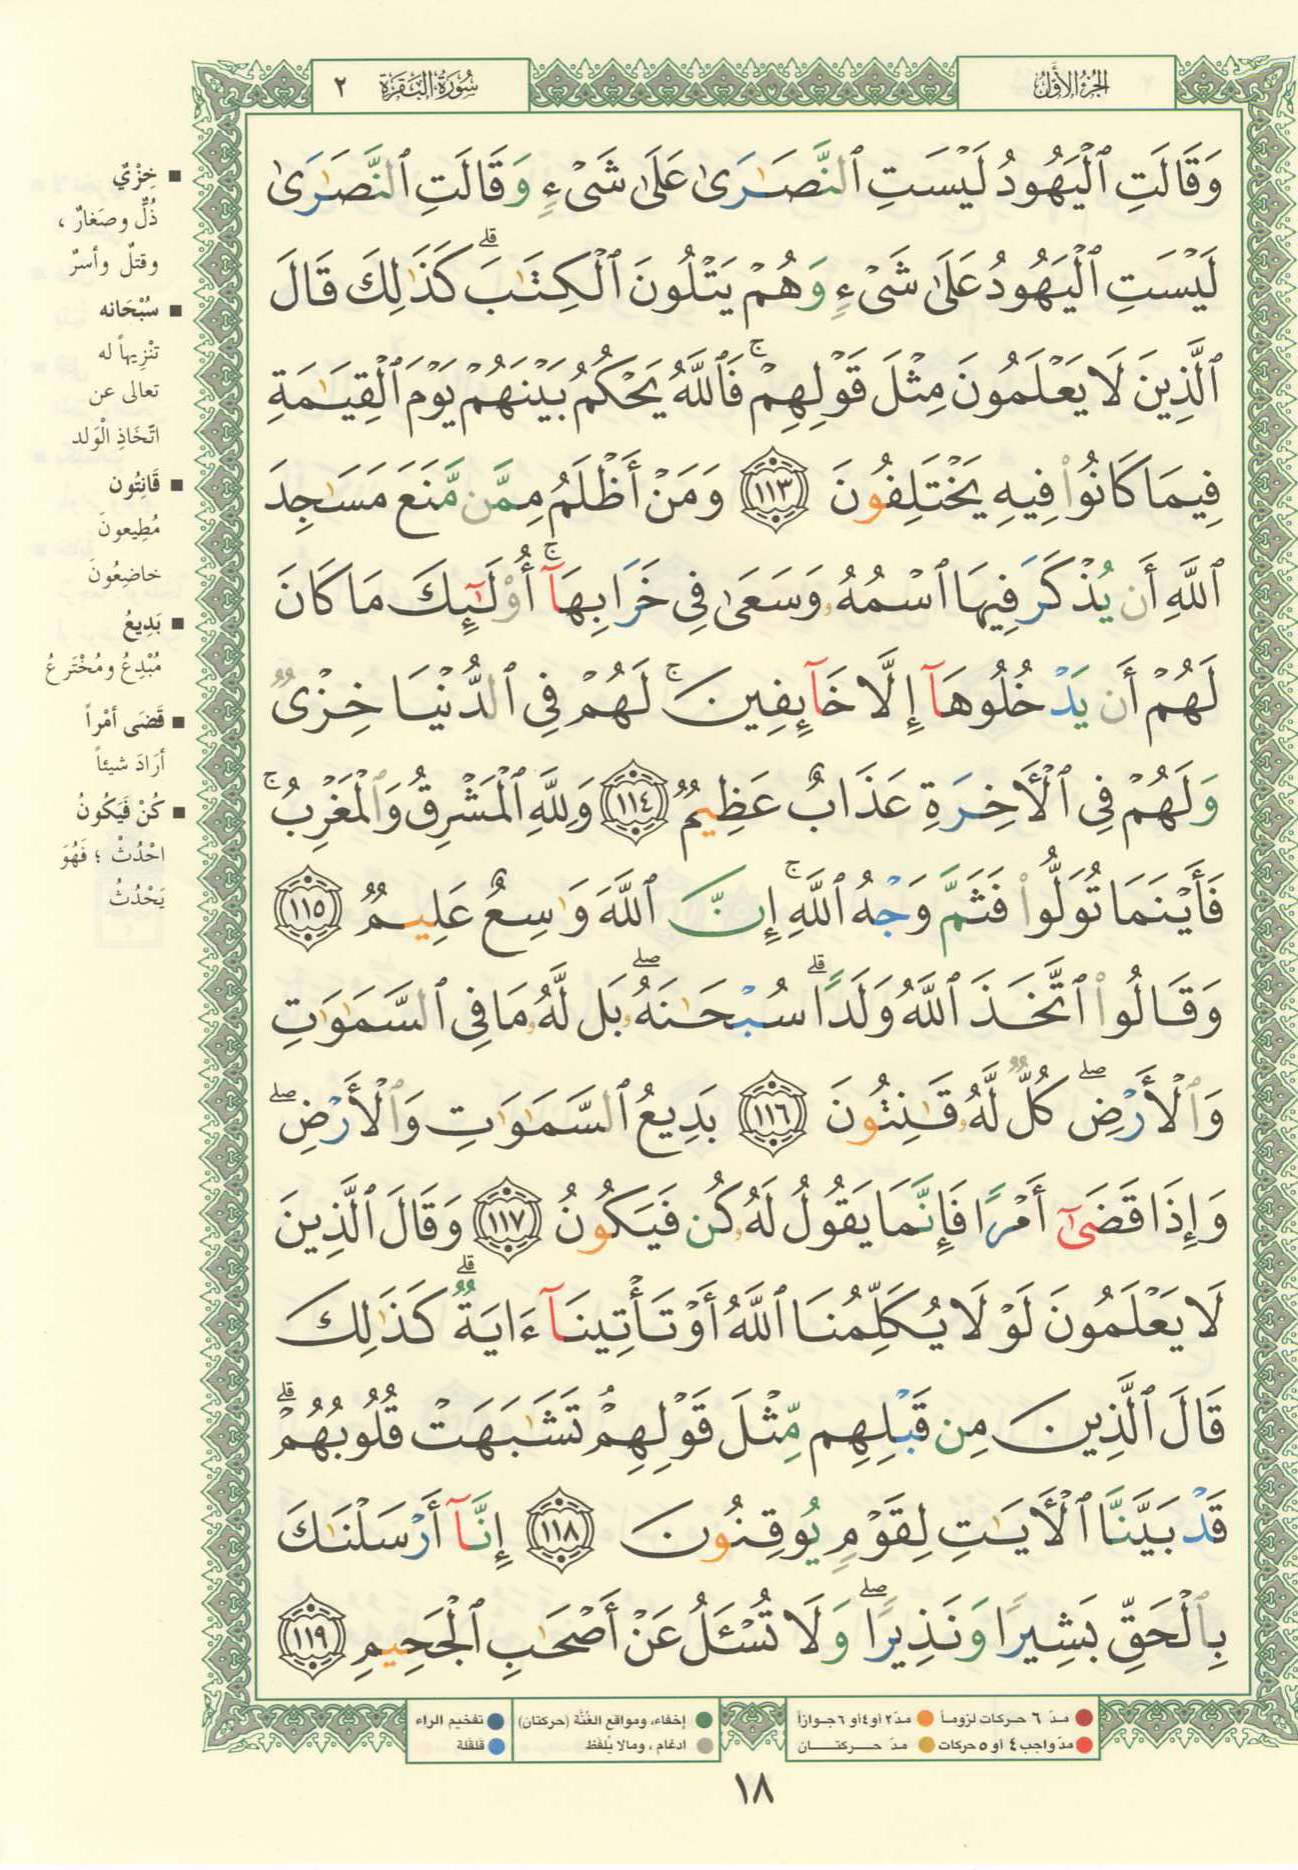 الجزء الأول
سورة البقرة ٢
وَقَالَتِ ٱلْيَهُودُ لَيْسَتِ ٱلنَّصَـٰرَىٰ عَلَىٰ شَىْءٍ وَقَالَتِ ٱلنَّصَـٰرَىٰ
لَيْسَتِ ٱلْيَهُودُ عَلَىٰ شَىْءٍ وَهُمْ يَتْلُونَ ٱلْكِتَـٰبَ ۗ كَذَٰلِكَ قَالَ
ٱلَّذِينَ لَا يَعْلَمُونَ مِثْلَ قَوْلِهِمْ ۚ فَٱللَّهُ يَحْكُمُ بَيْنَهُمْ يَوْمَ ٱلْقِيَـٰمَةِ
فِيمَا كَانُوا۟ فِيهِ يَخْتَلِفُونَ ١١٣ وَمَنْ أَظْلَمُ مِمَّن مَّنَعَ مَسَـٰجِدَ
ٱللَّهِ أَن يُذْكَرَ فِيهَا ٱسْمُهُۥ وَسَعَىٰ فِى خَرَابِهَآ ۚ أُو۟لَـٰٓئِكَ مَا كَانَ
لَهُمْ أَن يَدْخُلُوهَآ إِلَّا خَآئِفِينَ ۚ لَهُمْ فِى ٱلدُّنْيَا خِزْىٌ
وَلَهُمْ فِى ٱلْأَخِرَةِ عَذَابٌ عَظِيمٌ ١١٤ وَلِلَّهِ ٱلْمَشْرِقُ وَٱلْمَغْرِبُ ۚ
فَأَيْنَمَا تُوَلُّوا۟ فَثَمَّ وَجْهُ ٱللَّهِ ۚ إِنَّ ٱللَّهَ وَٰسِعٌ عَلِيمٌ ١١٥
وَقَالُوا۟ ٱتَّخَذَ ٱللَّهُ وَلَدًا ۗ سُبْحَـٰنَهُۥ ۖ بَل لَّهُۥ مَا فِى ٱلسَّمَـٰوَٰتِ
وَٱلْأَرْضِ ۖ كُلٌّ لَّهُۥ قَـٰنِتُونَ ١١٦ بَدِيعُ ٱلسَّمَـٰوَٰتِ وَٱلْأَرْضِ ۖ
وَإِذَا قَضَىٰٓ أَمْرًا فَإِنَّمَا يَقُولُ لَهُۥ كُن فَيَكُونُ ١١٧ وَقَالَ ٱلَّذِينَ
لَا يَعْلَمُونَ لَوْلَا يُكَلِّمُنَا ٱللَّهُ أَوْ تَأْتِينَآ ءَايَةٌ ۗ كَذَٰلِكَ
قَالَ ٱلَّذِينَ مِن قَبْلِهِم مِّثْلَ قَوْلِهِمْ ۘ تَشَـٰبَهَتْ قُلُوبُهُمْ ۗ
قَدْ بَيَّنَّا ٱلْأَيَـٰتِ لِقَوْمٍ يُوقِنُونَ ١١٨ إِنَّآ أَرْسَلْنَـٰكَ
بِٱلْحَقِّ بَشِيرًا وَنَذِيرًا ۖ وَلَا تُسْـَٔلُ عَنْ أَصْحَـٰبِ ٱلْجَحِيمِ ١١٩
■ خِزْيٌ
ذُلٌّ وصَغارٌ ،
وقتلٌ وأسرٌ
■ سُبْحَانه
تنْزِيهاً له
تعالى عن
اتّخَاذِ الْوَلد
■ قَانِتُون
مُطِيعونَ
خاضِعُونَ
■ بَدِيعُ
مُبْدِعُ ومُخْتَرعُ
■ قَضَى أمْراً
أرَادَ شيئاً
■ كُنْ فَيَكُونُ
احْدُثْ ؛ فَهُوَ
يَحْدُثُ
مدّ ٦ حركات لزوماً مدّ٢ أو٤أو ٦جوازاً
مدّ واجب٤ أو ٥ حركات مدّ حركتان
إخفاء، ومواقع الغُنَّة (حركتان)
ادغام ، ومالا يُلفَظ
تفخيم الراء
قلقلة
١٨